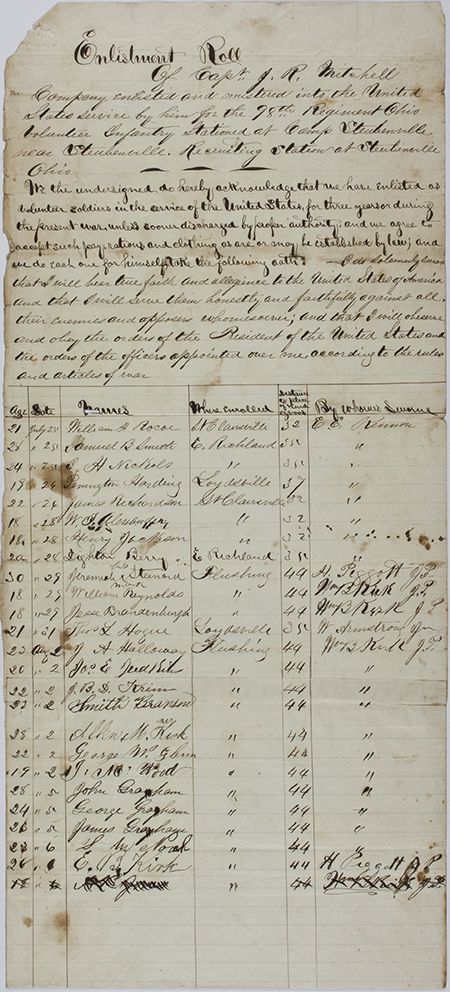 Enlistment Roll
Of Capt. J. R. Mitchell
Company enlisted and mustered into the United
States service by him for the 98th Regiment Ohio
Volunteer Infantry Stationed at Camp Steubenville
near Steubenville. Recruiting Station at Steubenville
Ohio
We the undersigned do hereby acknowledge that we have enlisted as
volunteer soldiers in the service of the United States, for three years or during
the present war, unless sooner discharged by proper authority; and we agree to
accept such pay, rations and clothing as are or may be established by law; and
we do each one for himself take the following oath: I do solemnly swear
that I will bear true faith and allegiance to the United States of America
and that I will serve them honestly and faithfully against all
their enemies and opposers whomsoever; and that I will observe
and obey the orders of the President of the United States and
the orders of the officers appointed over me according to the rules
and articles of war
Age Date Names Where enrolled Distance to place of rendezvous By whome Sworne
21 July 25 William A Bocoe St Clairsville 32 E. E. Kennon
25 Samuel B Smith E. Richland 35 "
24 " 25 J. H Nichols " 35 "
19 " 26 Pennington Harding Loydsville 37 "
22 " 26 James Richardson St Clairsville 32 "
18 " 28 W. J. " 32 "
18 " 28 Henry Jackson " 32 "
20 " 28 Dighton Berry E Richland 35 "
30 " 29 Jeremiah his mark Steward Flushing 44 H. Piggott J.P.
18 " 29 William Reynolds " 44 Wm B Kirk J.P.
18 " 29 Jesse Brandenburgh " 44 Wm B Kirk J P
21 " 31 Thos L Hogue Loydsville 35 W. Armstrong
23 Aug 2 J A Hallaway Flushing 44 Wm B Kirk J P
20 " 2 Jos E Judkins " 44 "
22 " 2 J. B. D. Krim " 44 "
23 " 2 Smith Branson " 44 "
28 " 2 Allen M. Kirk " 44 "
22 " 2 George W. Glenn " 44 "
19 " 2 J. Mc Wood " 44 "
28 " 5 John Graham " 44 "
24 " 5 George Graham " 44 "
" 5 James Graham " 44 "
23 " 6 " 44 "
26 " 6 E. Kirk " 44 H Piggott J P
18 " " 44 J P